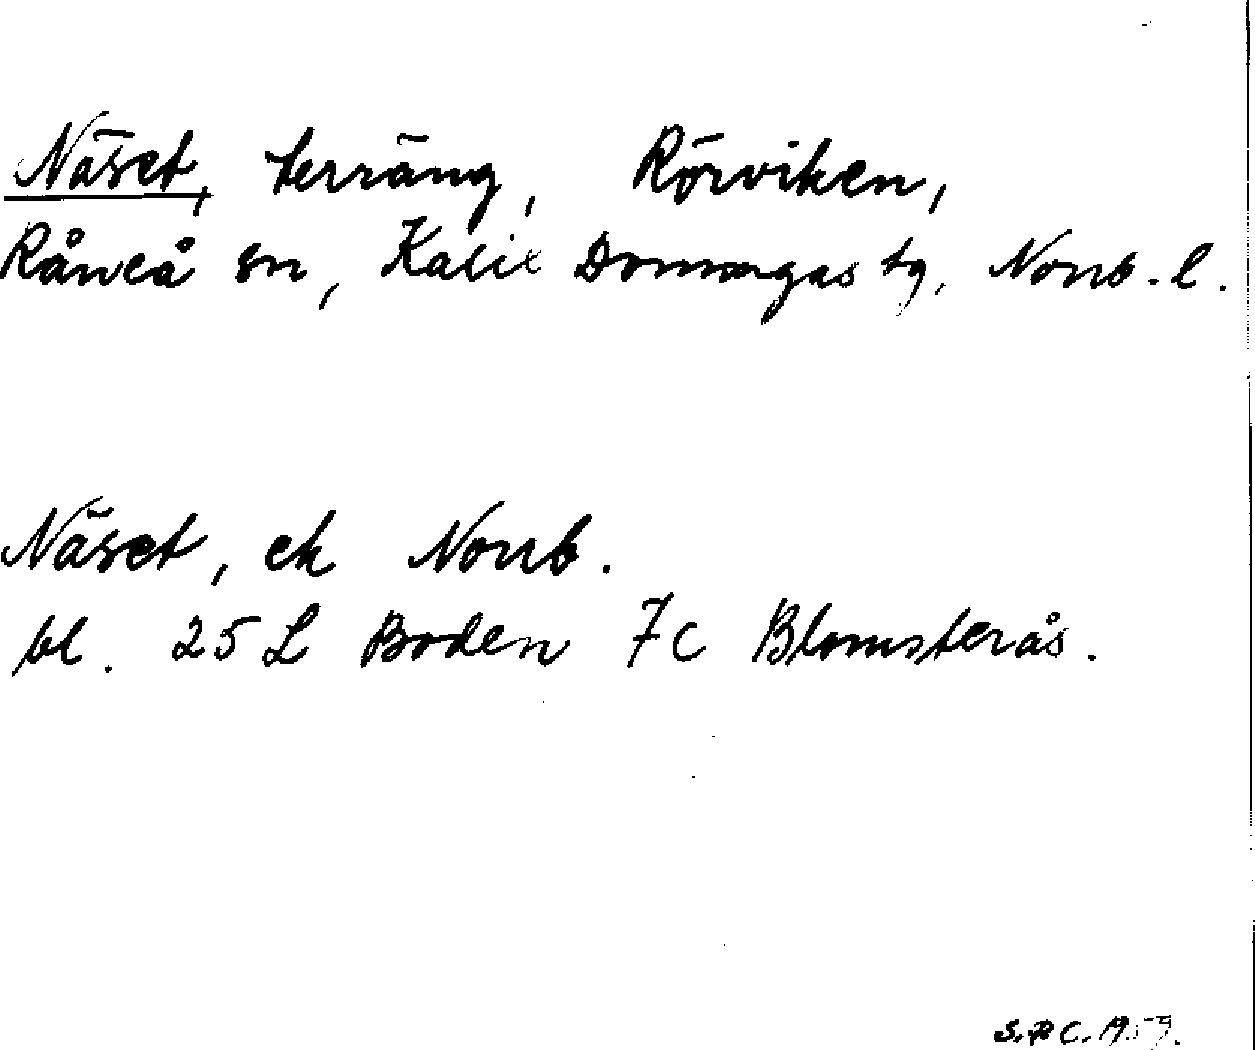 Näset, terräng, Rörviken,
Råneå sn, Kalix Domsagas tg, Norrb. l.
Näset, ek Norrb.
bl. 25 L Boden 7c Blomsterås.